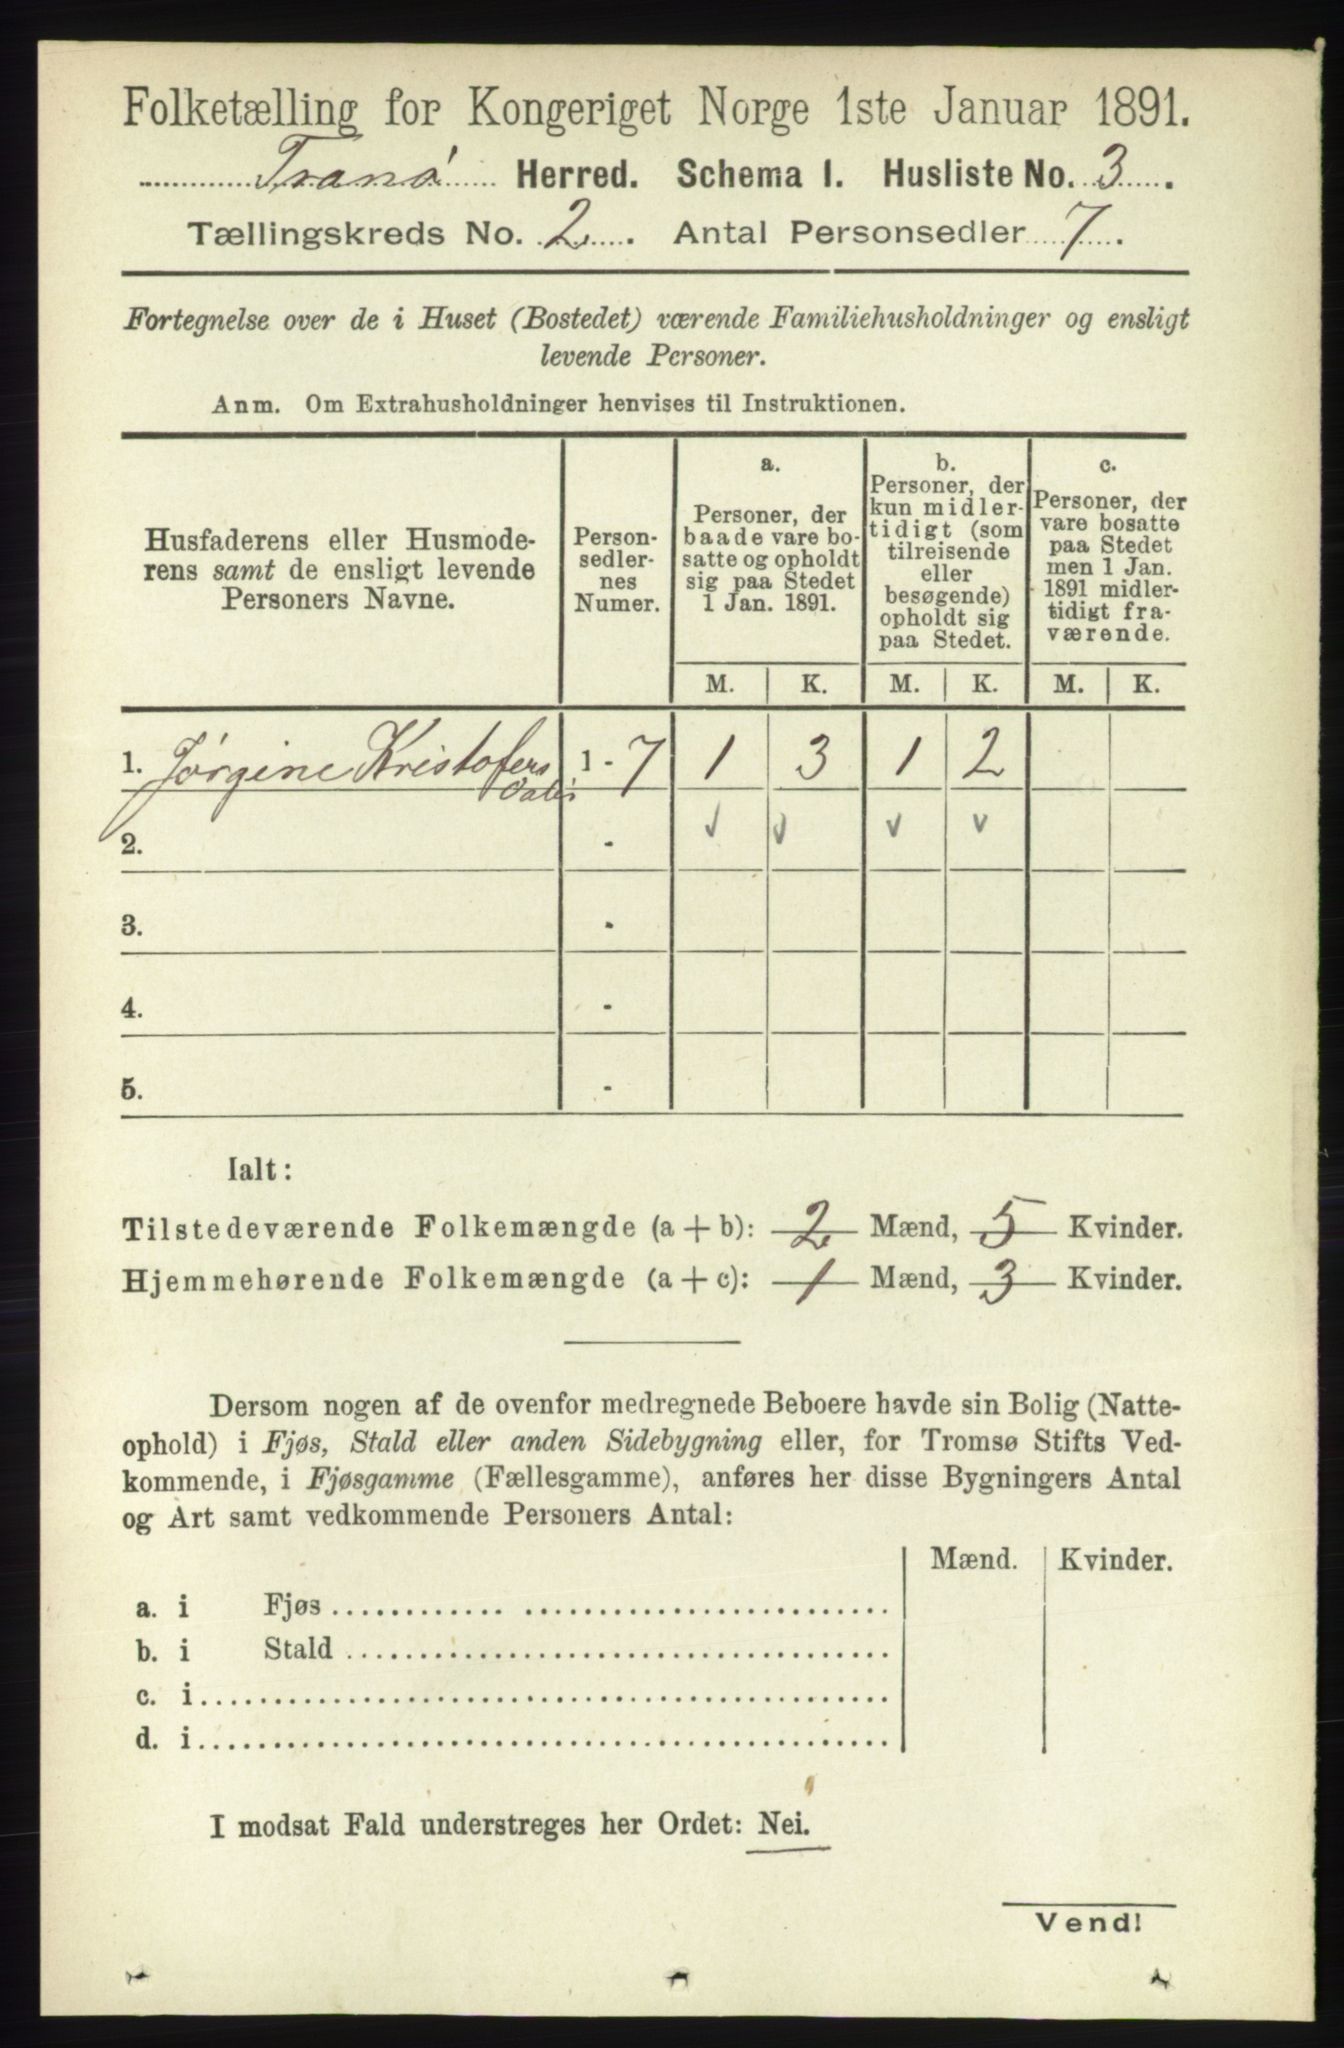 Folketælling for Kongeriget Norge 1ste Januar 1891.
Tranö Herred. Schema I. Husliste No. 3.
Tællingskreds No. 2. Antal Personsedler 7.
Fortegnelse over de i Huset (Bostedet) værende Familiehusholdninger og ensligt
levende Personer.
Anm. Om Extrahusholdninger henvises til Instruktionen.
Husfaderens eller Husmode-
rens samt de ensligt levende
Personers Navne.
Person-
sedler-
nes
Numer.
a.
Personer, der
baade vare bo-
satte og opholdt
sig paa Stedet
1 Jan. 1891.
b.
Personer, der
kun midler-
tidigt (som
tilreisende
eller
besøgende)
opholdt sig
paa Stedet.
c.
Personer, der
vare bosatte
paa Stedet
men 1 Jan.
1891 midler-
tidigt fra-
værende.
M. K. M. K. M. K.
1. Jørgine Kristofers 1 - 7 1 3 1 2
2. -
3. -
4. -
5. -
Ialt:
Tilstedeværende Folkemængde (a + b): 2 Mænd, 5 Kvinder.
Hjemmehørende Folkemængde (a + c): 1 Mænd, 3 Kvinder.
Dersom nogen af de ovenfor medregnede Beboere havde sin Bolig (Natte-
ophold) i Fjøs, Stald eller anden Sidebygning eller, for Tromsø Stifts Ved-
kommende, i Fjøsgamme (Fællesgamme), anføres her disse Bygningers Antal
og Art samt vedkommende Personers Antal:
Mænd. Kvinder.
a. i Fjøs
b. i Stald
c. i
d. i
I modsat Fald understreges her Ordet: Nei.
Vend!